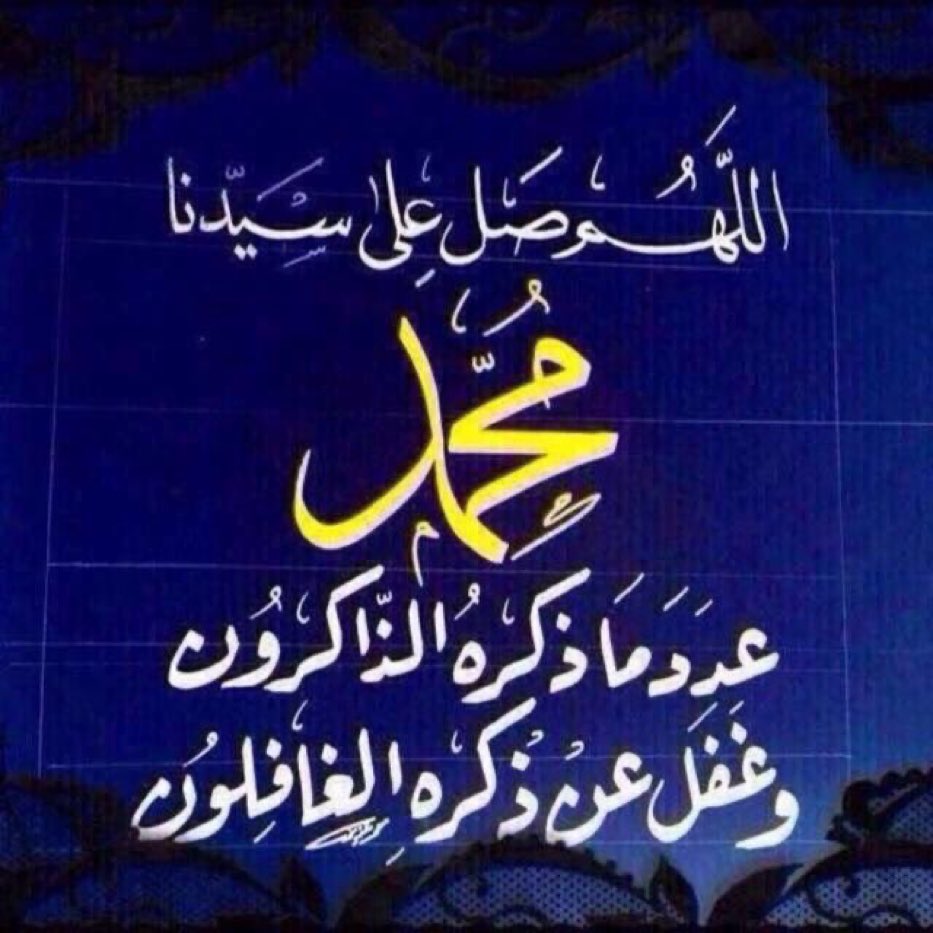 اللَّهُم صَل عَلى سِيّدنا
مُحِمّد
عدِدَ مَا ذكِرهُ الذّاكرُون
وغَفَلَ عنْ ذكْرهِ الغافِلوُن